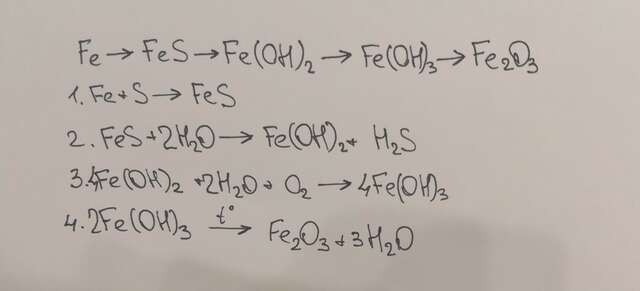 Fe → FeS → Fe(OH)₂ → Fe(OH)₃ → Fe₂O₃
1. Fe + S → FeS
2. FeS + 2H₂O → Fe(OH)₂ + H₂S
3. 4Fe(OH)₂ + 2H₂O + O₂ → 4Fe(OH)₃
4. 2Fe(OH)₃ t° → Fe₂O₃ + 3H₂O